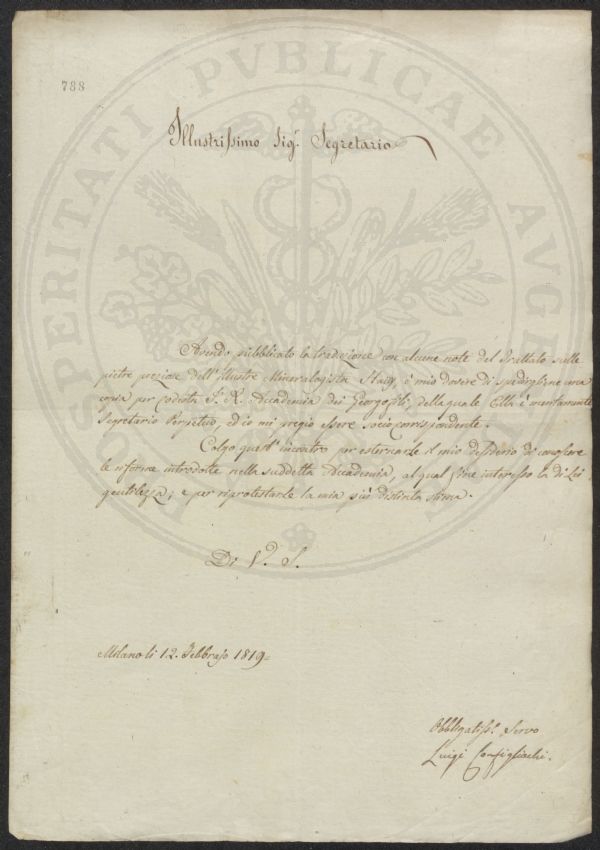 788
PROSPERITATI PVBLICAE AVGENDAE
Illustrissimo Sig.r Segretario
Avendo pubblicato la traduzione con alcune note del Trattato sulle
pietre preziose dell'illustre Mineralogista Haüy è mio dovere di spedirglene una
copia per codesta I. R. Accademia dei Georgofili della quale Ella è meritamente
Segretario Perpetuo, ed io mi pregio essere socio corrispondente.
Colgo quest'incontro per esternarle il mio desiderio di conoscere
le riforme introdotte nella suddetta Accademia, al qual fine interesso la di Lei
gentilezza; e per riprotestarle la mia più distinta stima.
Di V. S.
Milano li 12. Febbrajo 1819=
Obbligatiss.o Servo
Luigi Configliachi.